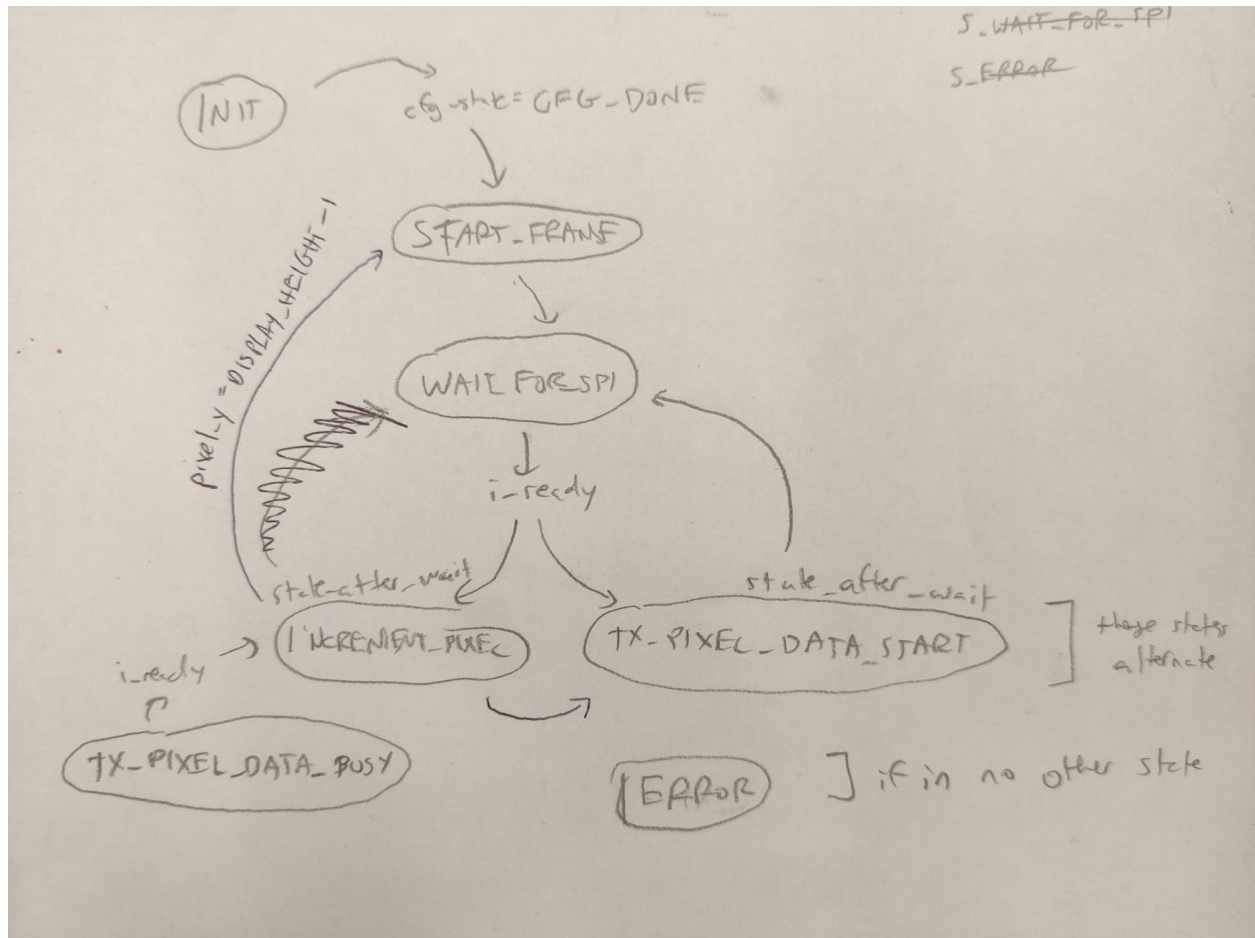 S_WAIT_FOR_SPI
S_ERROR
INIT
cfg_state = CFG_DONE
START_FRAME
pixel_y = DISPLAY_HEIGHT - 1
WAIT_FOR_SPI
i_ready
state_after_wait
state_after_wait
INCREMENT_PIXEL
TX_PIXEL_DATA_START
] these states
alternate
i_ready
TX_PIXEL_DATA_BUSY
ERROR
] if in no other state